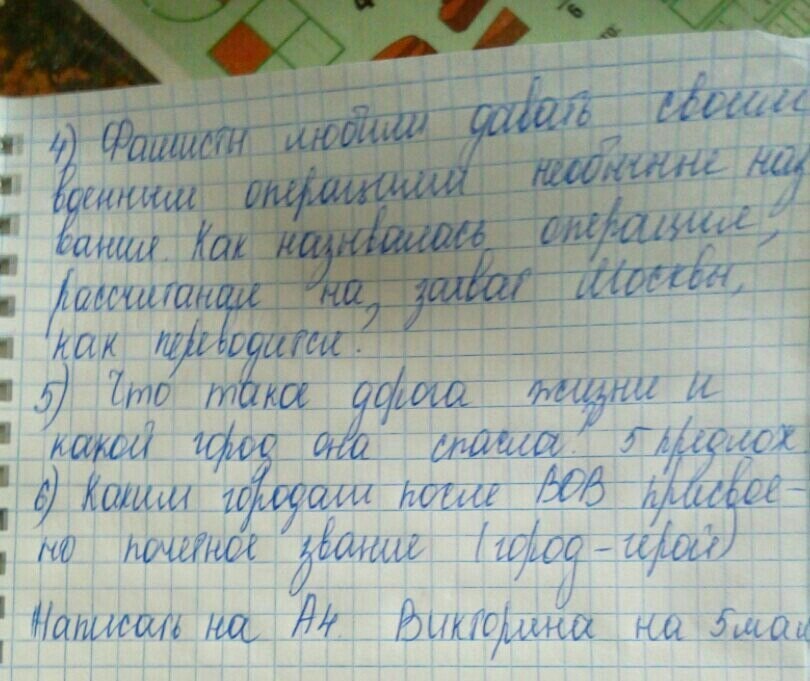 4) Фашисты любили давать своим
военным операциям необычные наз
вания. Как называлась операция,
рассчитаная на, захват Москвы,
как переводится?
5) Что такое дорога жизни и
какой город она спасла? 5 предлож
6) Каким городам после ВОВ присвое-
но почетное звание (город-герой)
Написать на А4. Викторина на 5 мая